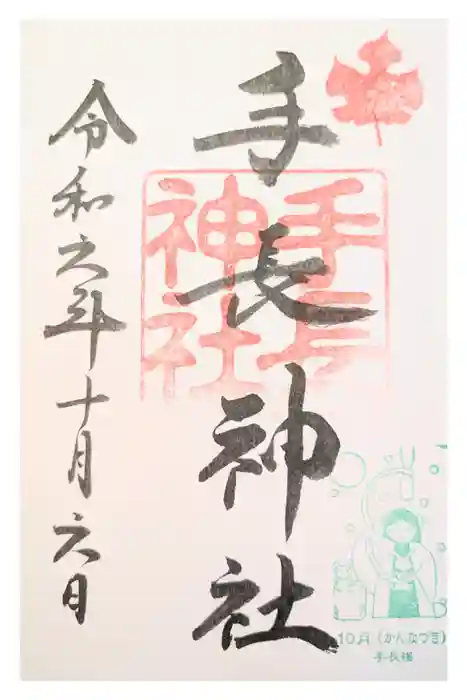 手長神社
手長神社
令和六年十月六日
10月(かんなづき)
手長様